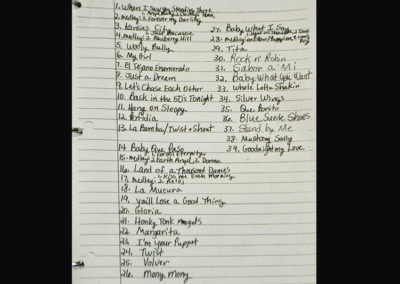 1. When I Saw You Standing There
2. medley: 2. Forever my Darling
3. Kansas City
1. Just Because
4. medley: 2. Blueberry Hill
5. Wooly Bully
6. My Girl
7. El Tejano Enamorado
8. Just a Dream
9. Let's Chase Each Other
10. Back in the 50's Tonight
11. Hang on Sloopy
12. Perfidia
13. La Bamba/Twist & Shout
14. Baby Blue
1. Eternity
15. medley: 2. Earth Angel, 3. Donna
16. Land of a Thousand Dances
1. Kiss me Each Morning
17. medley: 2.
18. La Mucura
19. you'll Lose a Good Thing
20. Gloria
21. Honky Tonk Angels
22. Margarita
23. I'm your Puppet
24. Twist
25. Volver
26. Mony, Mony
27. Baby What I Say
28. medley:
29. Tita
30. Rock n' Robin
31. Sabor a Mi
32. Baby What You Want
33. Whole Lotta Shakin
34. Silver Wings
35. Que Bonito
36. Blue Suede Shoes
37. Stand by Me
38. Mustang Sally
39. Goodnight my Love